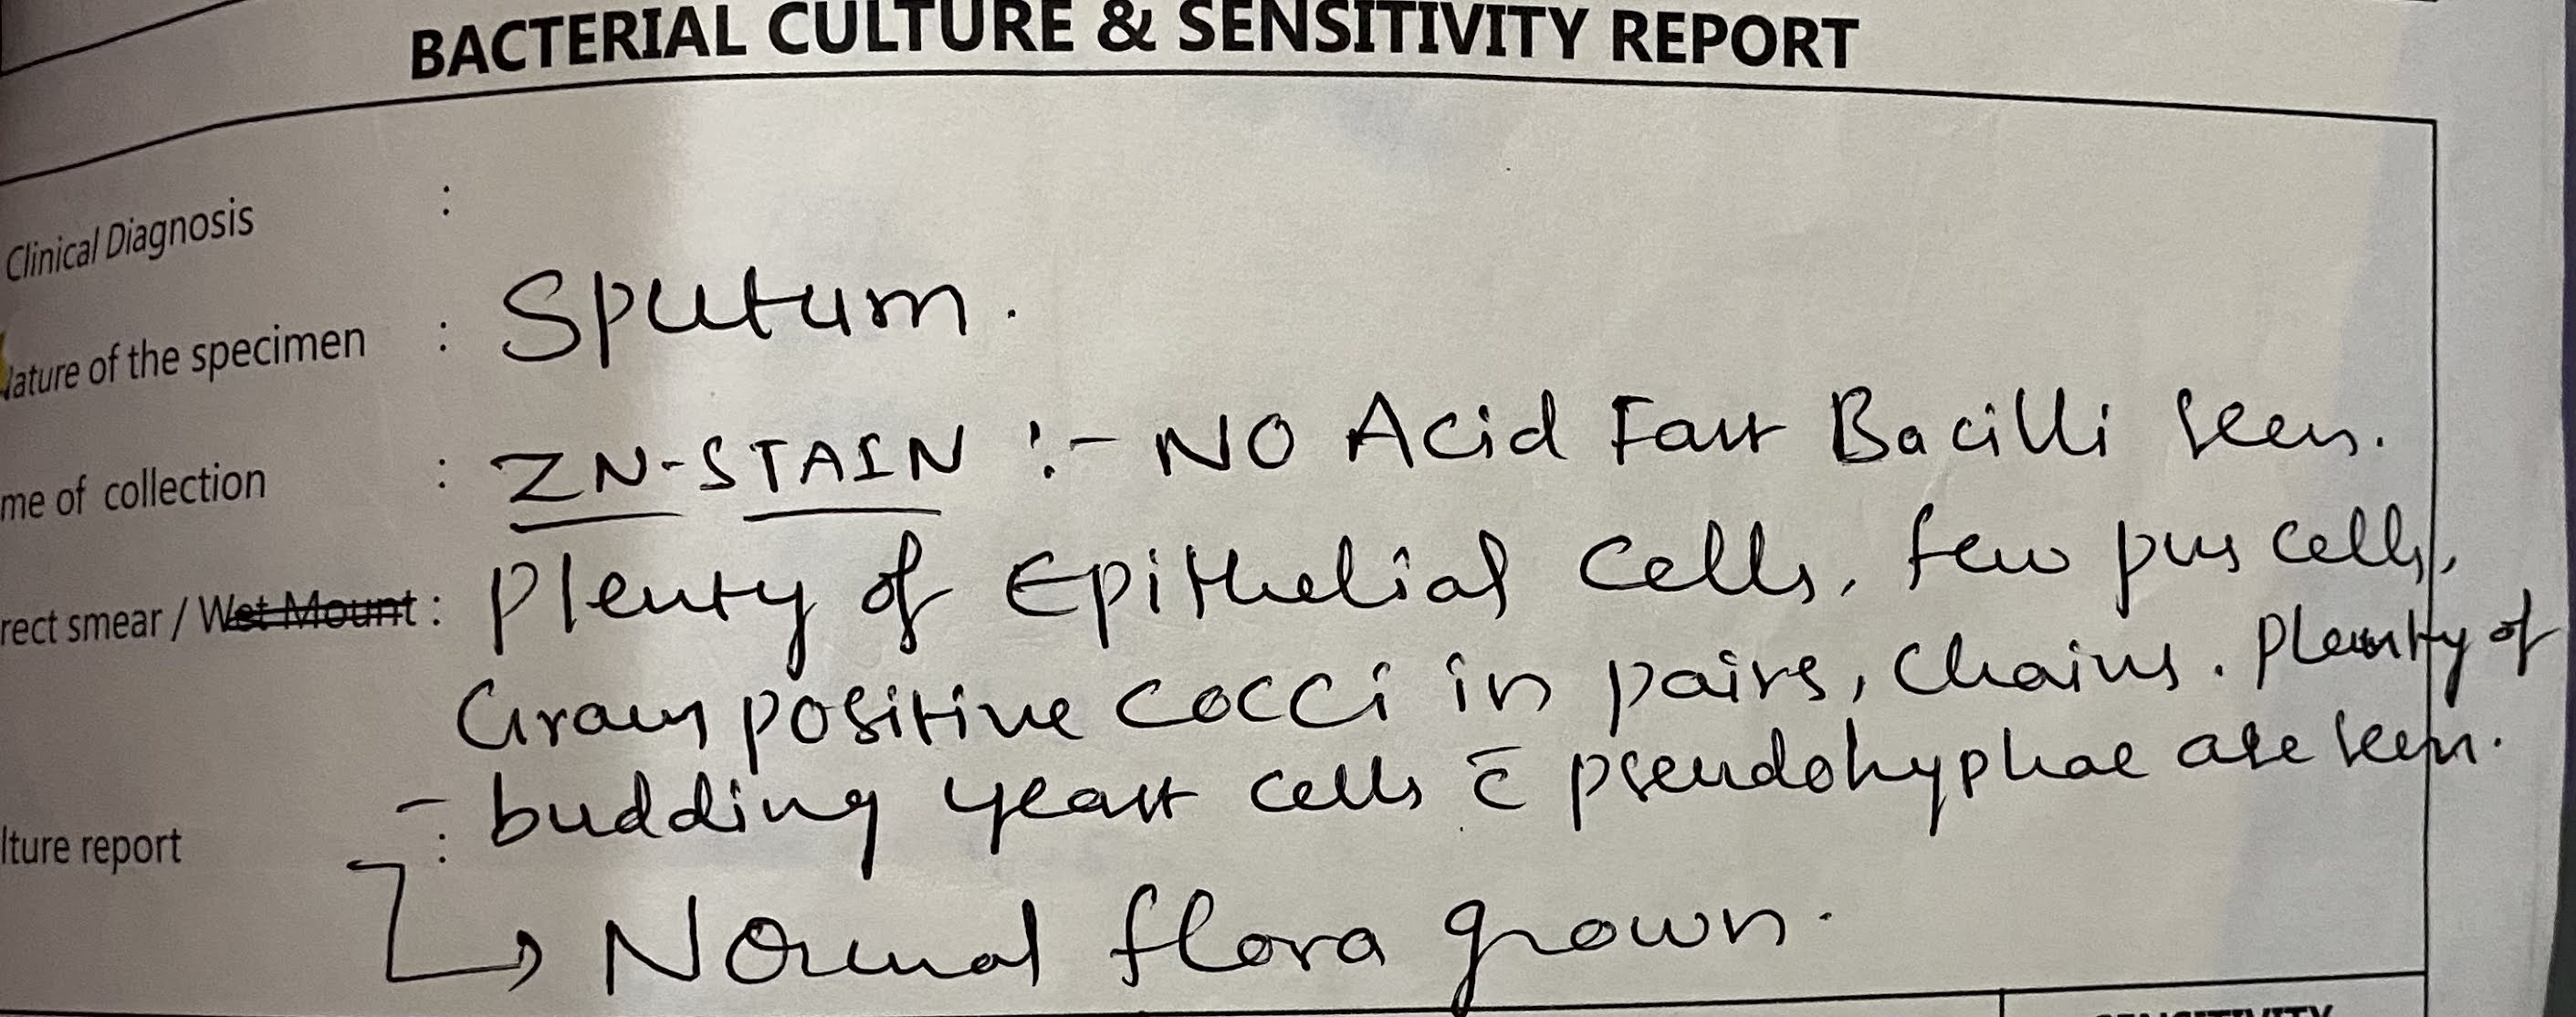 BACTERIAL CULTURE & SENSITIVITY REPORT
Clinical Diagnosis :
ature of the specimen : Sputum.
me of collection : ZN-STAIN :- NO Acid Fast Bacilli seen.
rect smear / Wet Mount : Plenty of Epithelial cells, few pus cells,
Gram positive cocci in pairs, chains. Plenty of
- budding yeast cells c̄ pseudohyphae are seen.
lture report :
→ Normal flora grown.
SENSITIVITY